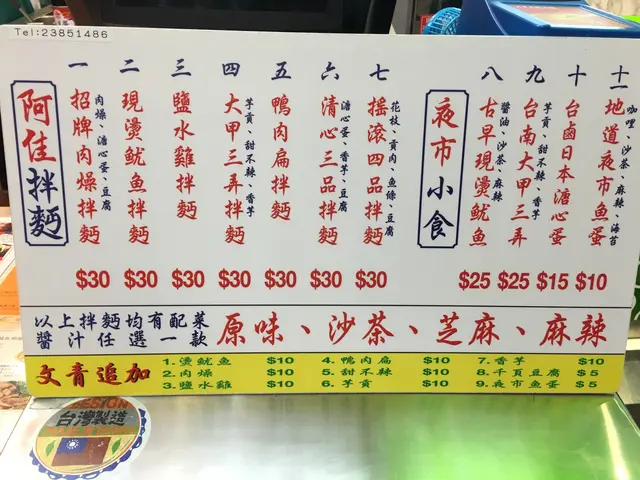 Tel:23851486
阿佳拌麵
一 招牌肉燥拌麵 肉燥、溏心蛋、豆腐 $30
二 現燙魷魚拌麵 $30
三 鹽水雞拌麵 $30
四 大甲三弄拌麵 芋貢、甜不辣、香芋 $30
五 鴨肉扁拌麵 $30
六 清心三品拌麵 溏心蛋、香芋、豆腐 $30
七 搖滾四品拌麵 花枝、貢肉、魚條、豆腐 $30
夜市小食
八 古早現燙魷魚 醬油、沙茶、麻辣 $25
九 台南大甲三弄 芋貢、甜不辣、香芋 $25
十 台鹵日本溏心蛋 $15
十一 地道夜市魚蛋 咖哩、沙茶、麻辣、海苔 $10
以上拌麵均有配菜
醬汁任選一款
原味、沙茶、芝麻、麻辣
文青追加
1.燙魷魚 $10
2.肉燥 $10
3.鹽水雞 $10
4.鴨肉扁 $10
5.甜不辣 $10
6.芋貢 $10
7.香芋 $10
8.千頁豆腐 $5
9.夜市魚蛋 $5
台灣製造